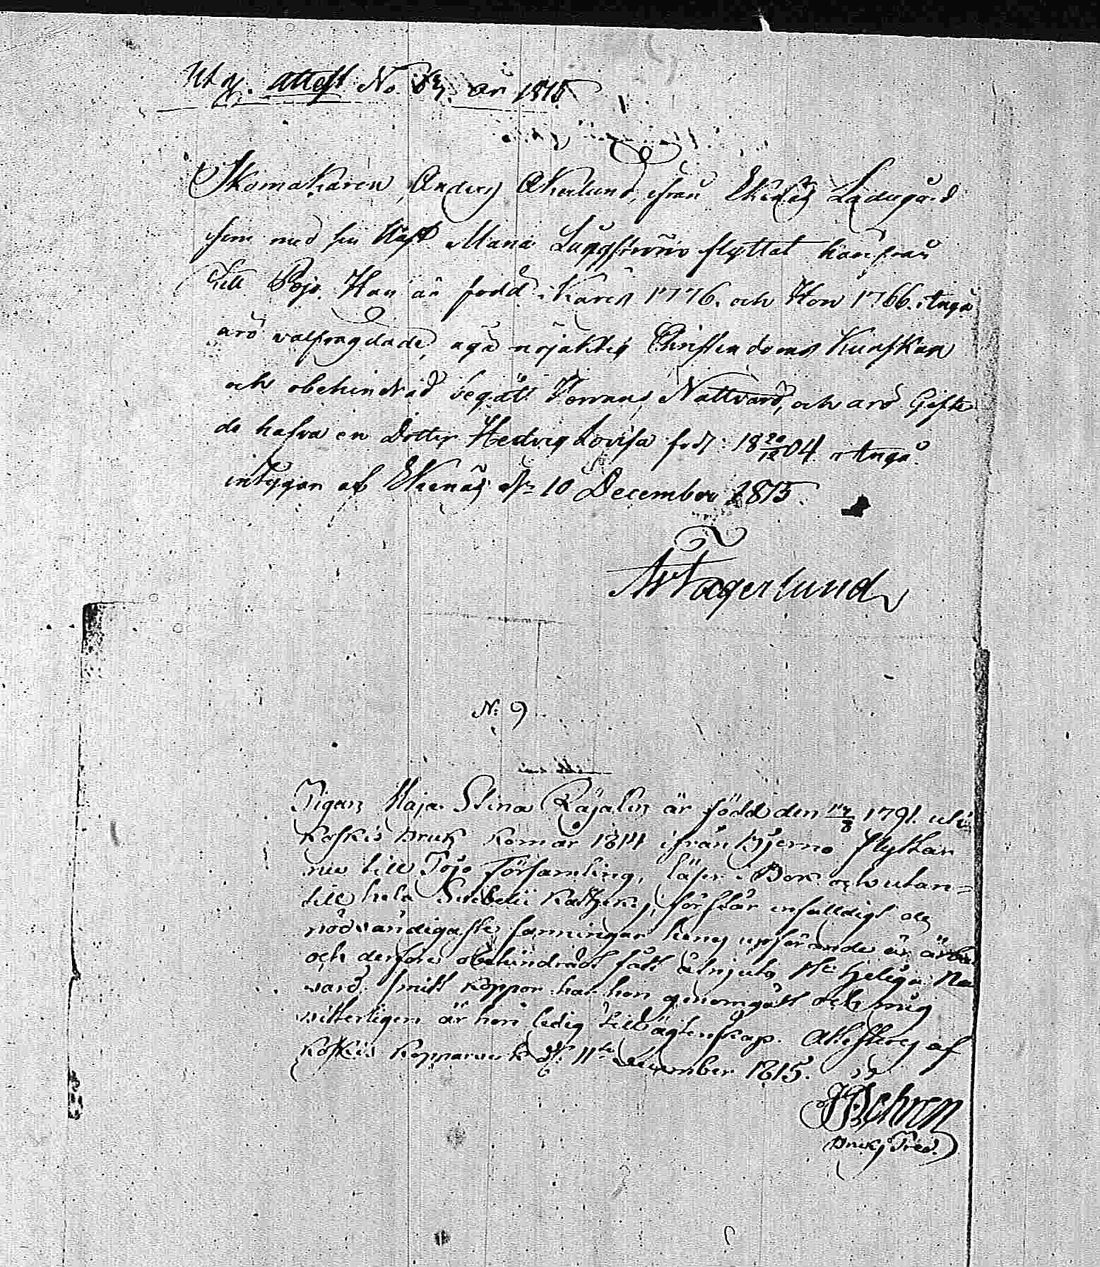 Utg. Attest No 67. år 1815
Skomakaren, Anders Åkerlund, ifrån Ekenäs Ladugård
som med sin Maria flyttat härifrån
till Pojo. Han är född i Karis 1776. och Hon 1766. i Ingå
äro välfrägdade, äga nöjaktig Christendoms Kunskap
och obehindrad begått Herrans Nattvard, och äro Gifte
de hafva en Dotter Hedvig Lovisa född: 18 20/12 04. i Ingå.
intygar af Ekenäs d. 10 December 1815.
Fagerlund
N: 9
Pigan Maja Stina är född den 1791. uti
Koskis Bruk kom år 1814 ifrån Bjerno flyttar
nu till Pojo Församling, läser i Bok och utan-
till hela Svebelii Kateches, förstår enfaldigt de
nödvändigaste sanningar hennes uppförande är
och derföre obehindradt fått åtnjuta Heliga Na
vard. Smitt koppor har hon genomgått och mig
vitterligen är hon ledig till Ägtenskap. Attesteras af
Koskis Kopparverk d. 11te December 1815.
Bruks Pred.